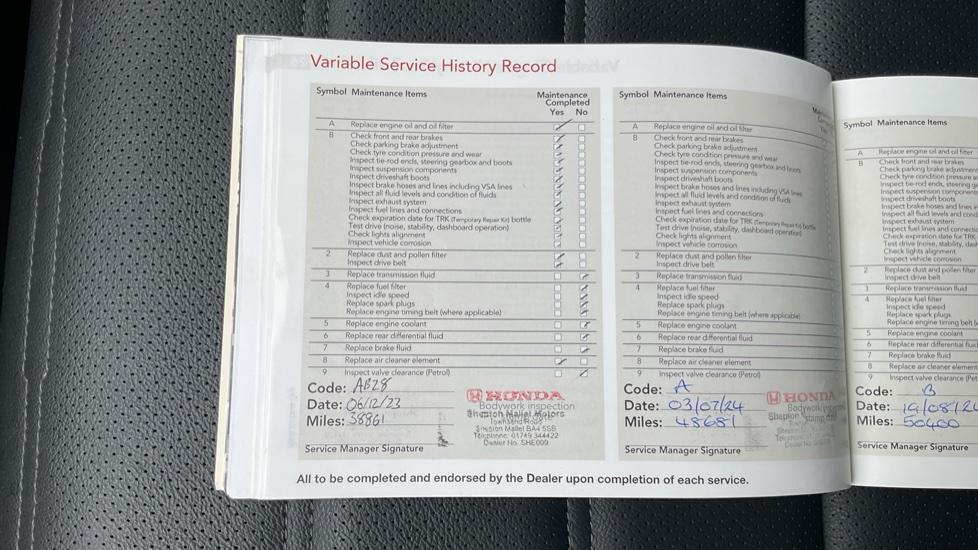 Variable Service History Record
Symbol Maintenance Items
Maintenance
Completed
Yes No
A Replace engine oil and oil filter
B Check front and rear brakes
Check parking brake adjustment
Check tyre condition pressure and wear
Inspect tie-rod ends, steering gearbox and boots
Inspect suspension components
Inspect driveshaft boots
Inspect brake hoses and lines including VSA lines
Inspect all fluid levels and condition of fluids
Inspect exhaust system
Inspect fuel lines and connections
Check expiration date for TRK (Temporary Repair Kit) bottle
Test drive (noise, stability, dashboard operation)
Check lights alignment
Inspect vehicle corrosion
2 Replace dust and pollen filter
Inspect drive belt
3 Replace transmission fluid
4 Replace fuel filter
Inspect idle speed
Replace spark plugs
Replace engine timing belt (where applicable)
5 Replace engine coolant
6 Replace rear differential fluid
7 Replace brake fluid
8 Replace air cleaner element
9 Inspect valve clearance (Petrol)
Code: AB28
Date: 06/12/23
Miles: 38861
HONDA
Bodywork inspection
Shepton Mallet Motors
Townsend Road
Shepton Mallet BA4 5SB
Telephone: 01749 344422
Dealer No. SHE009
Service Manager Signature
Symbol Maintenance Items
A Replace engine oil and oil filter
B Check front and rear brakes
Check parking brake adjustment
Check tyre condition pressure and wear
Inspect tie-rod ends, steering gearbox and boots
Inspect suspension components
Inspect driveshaft boots
Inspect brake hoses and lines including VSA lines
Inspect all fluid levels and condition of fluids
Inspect exhaust system
Inspect fuel lines and connections
Check expiration date for TRK (Temporary Repair Kit) bottle
Test drive (noise, stability, dashboard operation)
Check lights alignment
Inspect vehicle corrosion
2 Replace dust and pollen filter
Inspect drive belt
3 Replace transmission fluid
4 Replace fuel filter
Inspect idle speed
Replace spark plugs
Replace engine timing belt (where applicable)
5 Replace engine coolant
6 Replace rear differential fluid
7 Replace brake fluid
8 Replace air cleaner element
9 Inspect valve clearance (Petrol)
Code: A
Date: 03/07/24
Miles: 48681
HONDA
Bodywork
Shepton
Service Manager Signature
Symbol Maintenance Items
A Replace engine oil and oil filter
B Check front and rear brakes
Check parking brake adjustment
Check tyre condition pressure
Inspect tie-rod ends, steering
Inspect suspension components
Inspect driveshaft boots
Inspect brake hoses and lines
Inspect all fluid levels and
Inspect exhaust system
Inspect fuel lines and
Check expiration date for TRK
Test drive (noise, stability,
Check lights alignment
Inspect vehicle corrosion
2 Replace dust and pollen filter
Inspect drive belt
3 Replace transmission fluid
4 Replace fuel filter
Inspect idle speed
Replace spark plugs
Replace engine timing belt
5 Replace engine coolant
6 Replace rear differential
7 Replace brake fluid
8 Replace air cleaner element
9 Inspect valve clearance
Code: B
Date: 19/08/24
Miles: 50400
Service Manager Signature
All to be completed and endorsed by the Dealer upon completion of each service.